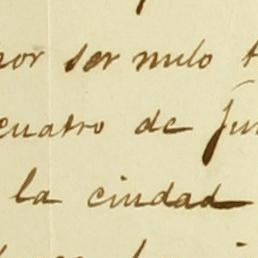 por ser nulo
cuatro de
la ciudad